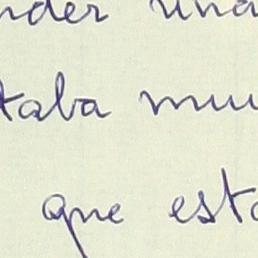 nder una
taba muy
que esta